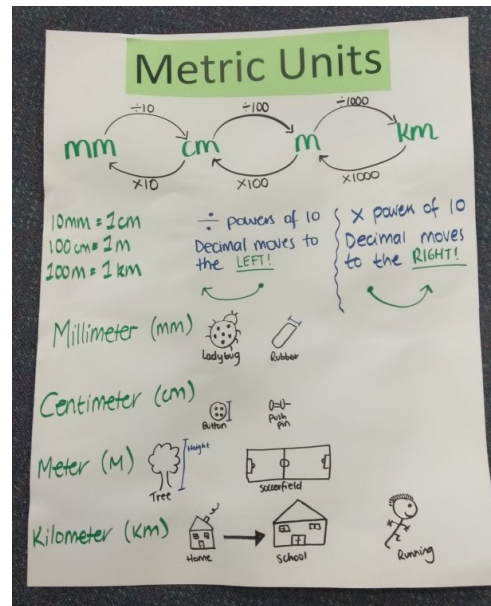 Metric Units
÷10 ÷100 ÷1000
mm cm m km
×10 ×100 ×1000
10mm = 1cm
100cm = 1m
100m = 1km
÷ powers of 10
Decimal moves to
the LEFT!
× powers of 10
Decimal moves
to the RIGHT!
Millimeter (mm)
Ladybug Rubber
Centimeter (cm)
Button Push
pin
Meter (M)
Height
Tree Soccerfield
Kilometer (Km)
Home School Running